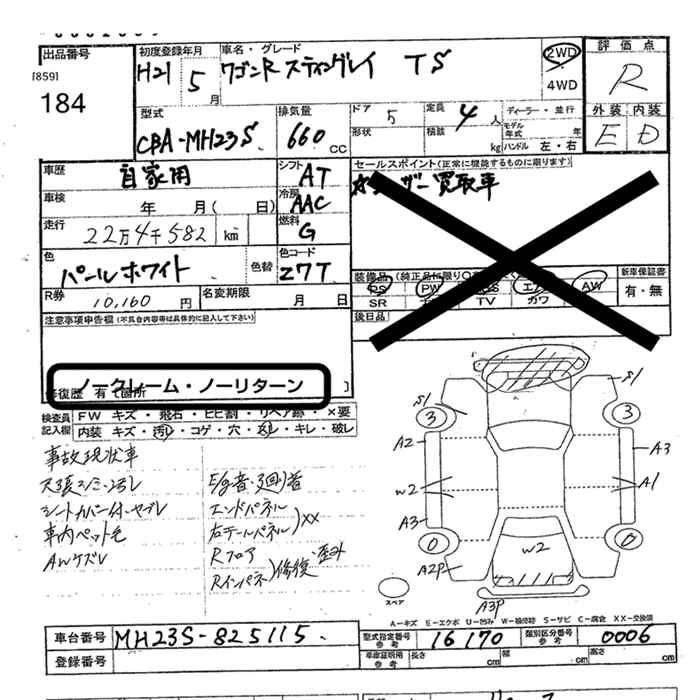 出品番号
[859]
184
初度登録年月
H21 5月
車名・グレード
ワゴンR スティングレイ TS
2WD
4WD
評価点
R
型式
CBA-MH23S
排気量
660 CC
ドア 5
形状
定員 4人
積載 kg
ディーラー・並行
モデル年式 年
ハンドル 左・右
外装 内装
E D
車歴
自家用
シフト
AT
車検
年 月( 日)
冷房
AAC
走行
22万4千582 km
燃料
G
色
パールホワイト
色替
色コード
Z7T
R券
10,160 円
名変期限
月 日
セールスポイント(正常に機能するものに限ります)
買取車
装備品 (純正品に限り
PS PW
AW
SR TV カワ
新車保証書
有・無
後日品
注意事項申告欄(不具合内容は具体的に記入して下さい)
ノークレーム・ノーリターン
修復歴 有て箇所
検査員記入欄
FW キズ・飛石・ヒビ割・リペア跡・×要
内装 キズ・汚れ・コゲ・穴・キレ・破レ
事故現状車
シートカバー付・ヤブレ
車内ペット毛
AWケズレ
E/g音・3回り音
エンドパネル
右テールパネル)××
Rフロア
Rインパネ)修復・歪み
S1
S1
3
3
A2
A3
W2
A1
A3
0
0
W2
A2P
A3P
スペア
A-キズ E-エクボ U-凹み W-補修跡 S-サビ C-腐食 XX-交換済
車台番号
MH23S-825115
型式指定番号
参考
16170
類別区分番号
参考
0006
登録番号
車庫証明用
参考
長さ cm
幅 cm
高さ cm